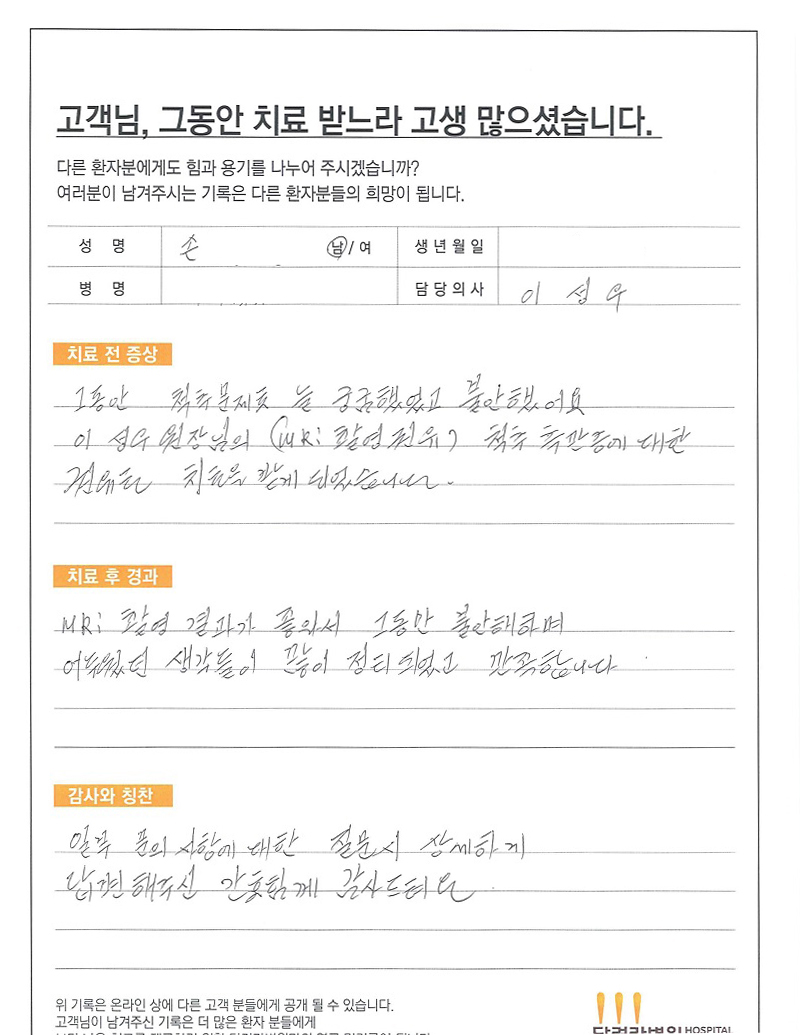 고객님, 그동안 치료 받느라 고생 많으셨습니다.
다른 환자분에게도 힘과 용기를 나누어 주시겠습니까?
여러분이 남겨주시는 기록은 다른 환자분들의 희망이 됩니다.
성 명 손 남 / 여 생년월일
병 명 담당의사 이 성 우
치료 전 증상
그동안 척추문제로 늘 궁금했었고 불안했어요
이 성우 원장님의 (MRi 촬영권유) 척추 측만증에 대한
치료을 받게 되었습니다.
치료 후 경과
MRi 촬영 결과가 좋아서 그동안 불안해하며
어두웠던 생각들이 정리되었고 만족합니다
감사와 칭찬
일부 문의 사항에 대한 질문시 상세하게
답변해주신 간호팀께 감사드려요
위 기록은 온라인 상에 다른 고객 분들에게 공개 될 수 있습니다.
고객님이 남겨주신 기록은 더 많은 환자 분들에게
HOSPITAL